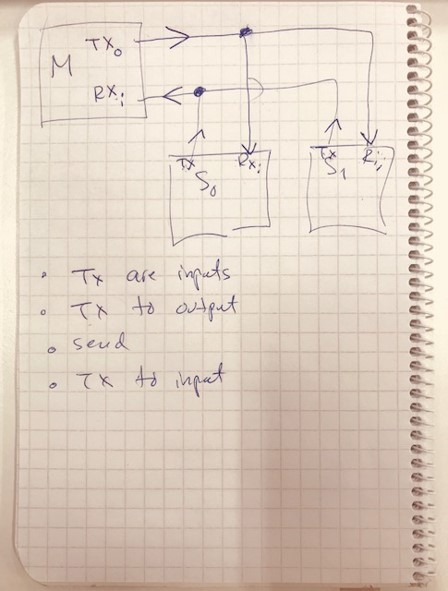 TX₀
M
RXᵢ
TX RXᵢ TX Rᵢ
S₀ S₁
• Tx are inputs
• TX to output
• send
• TX to input